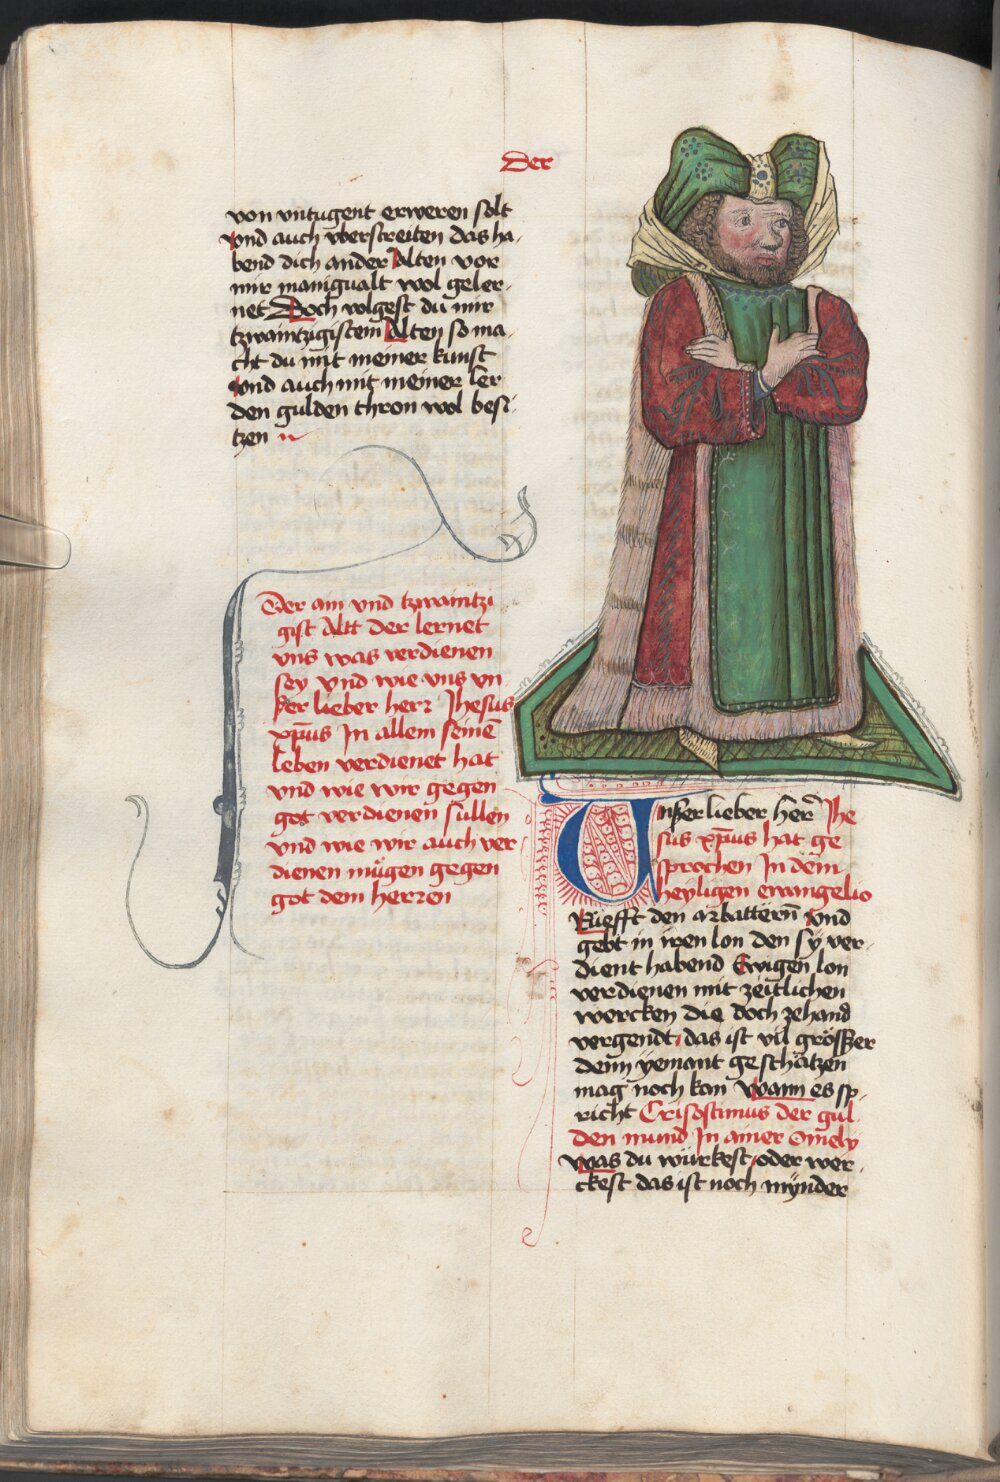 Der
von vntugent erweren solt
vnd auch vberstreiten das ha-
bend dich ander Alten vor
mir manigualt wol geler-
net Doch volgest du mir
tzwaintzigistem Alten so ma-
cht du mit meiner kunst
vnd auch mit meiner ler
den gulden thron wol besi-
tzen
Der ain vnd tzwaintzi
gist Altt der lernet
vns was verdienen
sey vnd wie vns vn
ser lieber herr Jhesus
xp̄us In allem seinē
leben verdienet hat
vnd wie wir gegen
got verdienen sullen
vnd wie wir auch ver
dienen mügen gegen
got dem herren
Vnser lieber her̄ Jhe
sus xp̄us hat ge
sprochen In dem
heyligen ewangelio
Riefft den arbattern̄ vnd
gebt in iren lon den sy ver-
dient habend Ewigen lon
verdienen mit zeitlichen
wercken die doch zehand
vergendt das ist vil grösser
denn yemant geschätzen
mag noch kan wann es sp-
richt Crisostimus der gul-
den mund In ainer Omely
was du würkest oder wer-
ckest das ist noch mynder